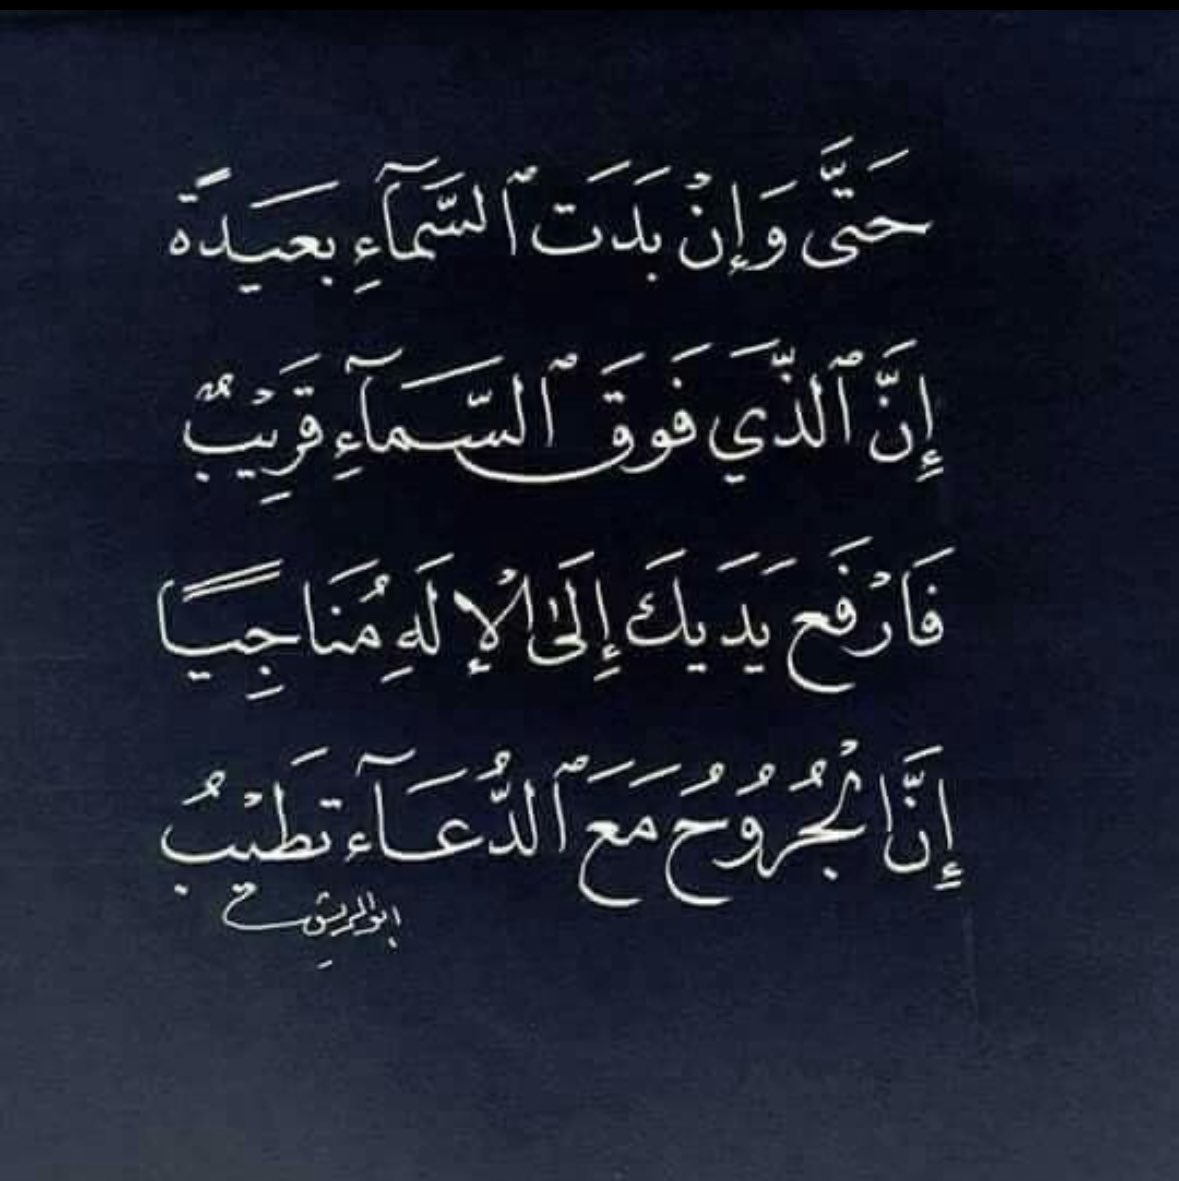 حَتَّى وَإِنْ بَدَتَ ٱلسَّمَآءِ بعَيدَةً
إِنَّ ٱلذَّي فَوقَ ٱلسَّمَآءِ قَرِيْبٌ
فَارْفَع يَدَيكَ إِلَىٰ الْإِلَهِ مُنَاجِيًا
إِنَّ الْجُرُوُحَ مَعَ ٱلدُّعَآء تَطَيْبُ
ابو الريش